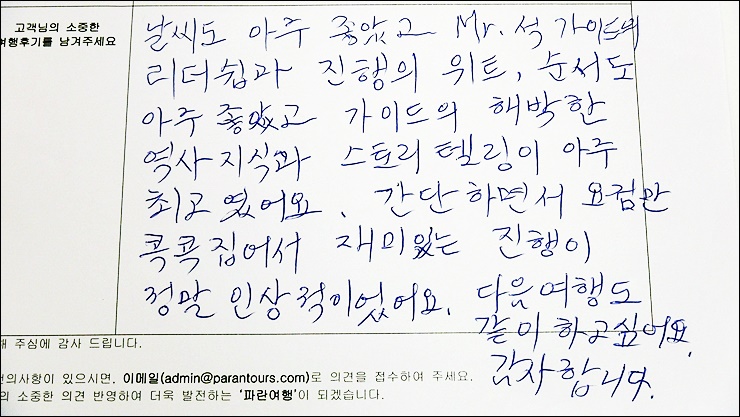 고객님의 소중한
여행후기를 남겨주세요
날씨도 아주 좋았고 Mr. 석 가이드의
리더쉽과 진행의 위트, 순서도
아주 좋았고 가이드의 해박한
역사지식과 스토리텔링이 아주
최고였어요. 간단하면서 요점만
콕콕 집어서 재미있는 진행이
정말 인상적이었어요. 다음여행도
같이 하고싶어요.
감사합니다.
해 주심에 감사 드립니다.
건의사항이 있으시면, 이메일(admin@parantours.com)로 의견을 접수하여 주세요.
의 소중한 의견 반영하여 더욱 발전하는 '파란여행'이 되겠습니다.